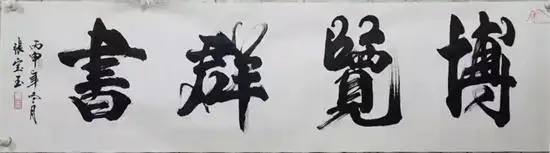 博覽群書
丙申年冬月
張宝玉